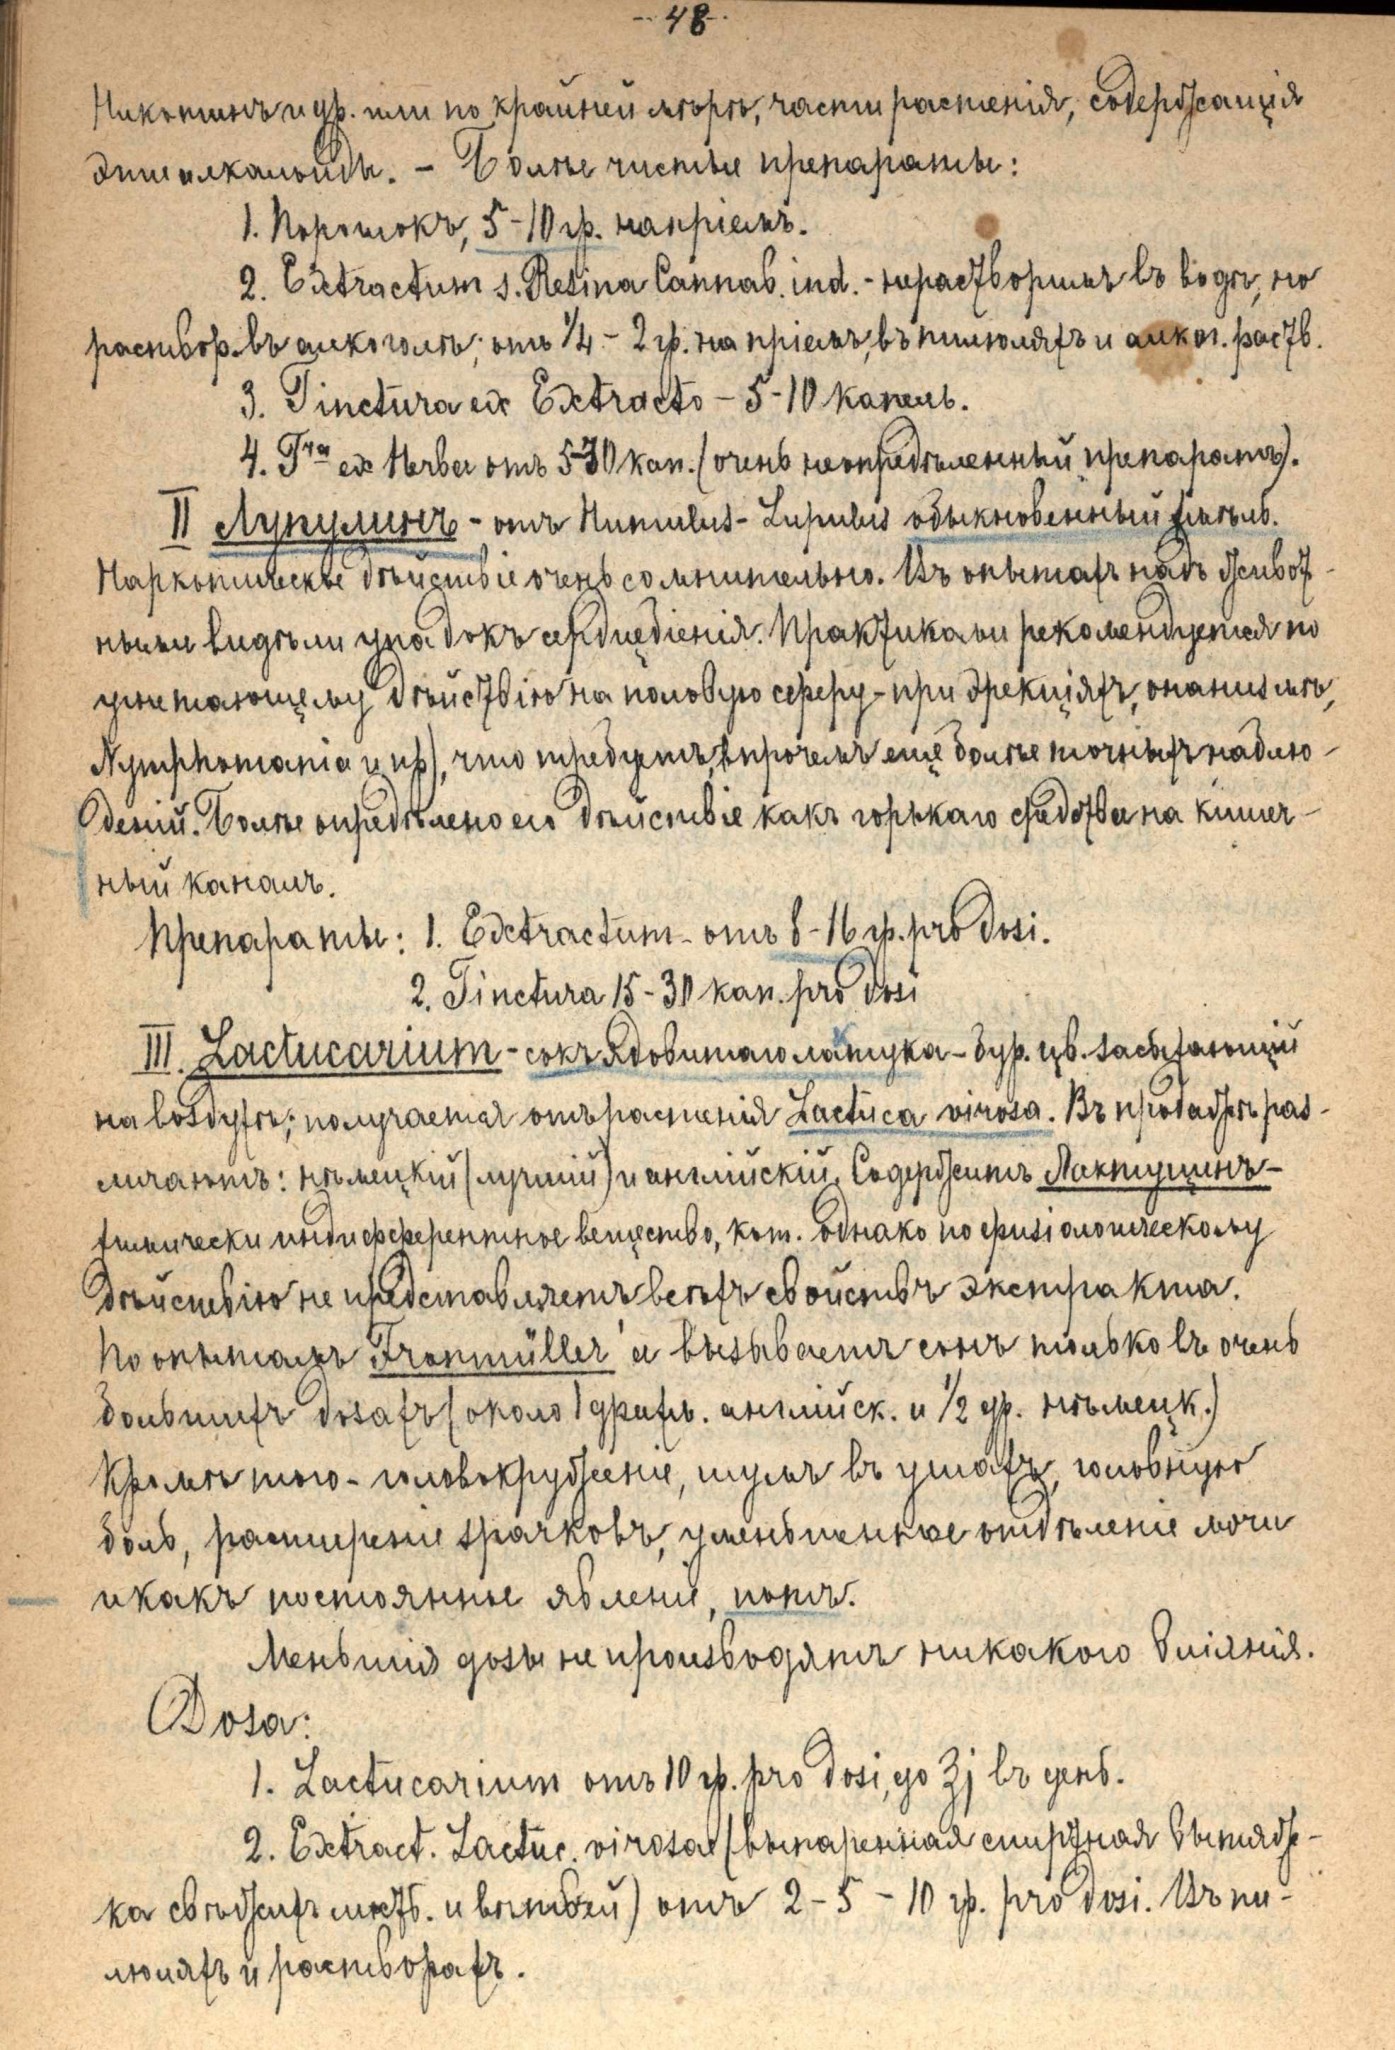 - 48 -
Никотинъ и др. или по крайней мѣрѣ, части растенія, содержащія
эти алкалоиды. - Болѣе чистые препараты:
1. Порошокъ, 5-10 гр. на пріемъ.
2. Extractum s. Resina Cannab. ind. - нерастворимъ въ водѣ, но
раствор. въ алкоголѣ; отъ 1/4 - 2 гр. на пріемъ, въ пилюляхъ и алког. раств.
3. Tinctura ex Extracto - 5-10 капель.
4. T-ra ex Herba отъ 5-30 кап. (очень неопредѣленный препаратъ).
II Лупулинъ - отъ Humulus-Lupulus обыкновенный хмѣль.
Наркотическое дѣйствіе очень сомнительно. Въ опытахъ надъ живот-
ными видѣли упадокъ сердцебіенія. Практиками рекомендуется по
угнетающему дѣйствію на половую сферу - при эрекціяхъ, онанизмѣ,
Nymphomania и пр), что требуетъ, впрочемъ еще болѣе точныхъ наблю-
деній. Болѣе опредѣлено его дѣйствіе какъ горькаго средства на кишеч-
ный каналъ.
Препараты: 1. Extractum - отъ 8-16 гр. pro dosi.
2. Tinctura 15-30 кап. pro dosi
III. Lactucarium - сокъ ядовитаго латука - бур. цв. засыхающій
на воздухѣ; получается отъ растенія Lactuca virosa. Въ продажѣ раз-
личаютъ: нѣмецкій (лучшій) и англійскій. Содержитъ Лактуцинъ -
химически индифферентное вещество, кот. однако по физіологическому
дѣйствію не представляетъ всѣхъ свойствъ экстракта.
По опытамъ Fronmüller'а вызываетъ сонъ только въ очень
большихъ dosахъ (около 1 драхм. англійск. и 1/2 др. нѣмецк.)
Кромѣ того - головокруженіе, шумъ въ ушахъ, головную
боль, расширеніе зрачковъ, уменьшенное отдѣленіе мочи
и какъ постоянное явленіе, потъ.
Меньшія дозы не производятъ никакого вліянія.
Dosa:
1. Lactucarium отъ 10 гр. pro dosi, до ʒj въ день.
2. Extract. Lactuc. virosae (выпаренная спиртная вытяж-
ка свѣжихъ листв. и вѣтвей) отъ 2 - 5 - 10 гр. pro dosi. Въ пи-
люляхъ и растворахъ.